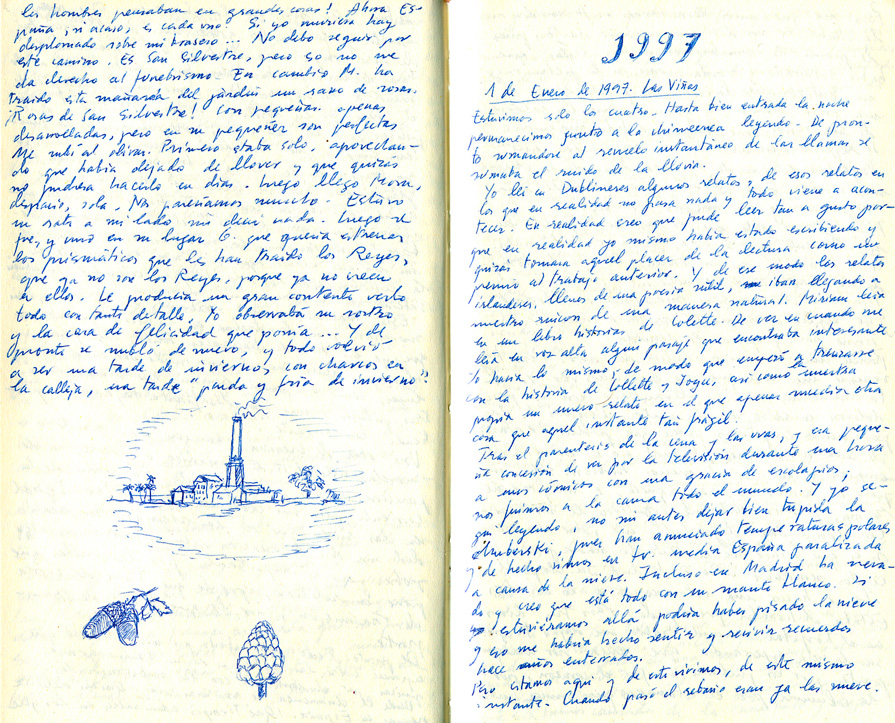 los hombres pensaban en grandes cosas! Ahora Es-
paña, si acaso, es cada uno. Si yo muriera hoy
desplomado sobre mi brasero... No debo seguir por
este camino. Es San Silvestre, pero eso no me
da derecho al funebrismo. En cambio M. ha
traido esta mañana del jardín un ramo de rosas.
¡Rosas de San Silvestre! Son pequeñas. apenas
desarrolladas, pero en su pequeñez son perfectas
Me subí al olivar. Primero estaba solo, aprovechan-
do que había dejado de llover y que quizás
no pudiera hacerlo en días. Luego llegó Mora,
despacio, sola. Nos queríamos mucho. Estuvo
un rato a mi lado sin decir nada. Luego se
fue, y vino en su lugar G. que quería estrenar
los prismáticos que les han traído los Reyes,
que ya no son los Reyes, porque ya no creen
en ellos. Le producía un gran contento verlo
todo con tanto detalle. Yo observaba su rostro
y la cara de felicidad que ponía... Y de
pronto se nubló de nuevo, y todo volvió
a ser una tarde de invierno con charcos en
la calleja, una tarde "parda y fría de invierno".
1997
1 de Enero de 1997. Las Viñas
Estuvimos solo los cuatro. Hasta bien entrada la noche
permanecimos junto a la chimenea leyendo. De pron-
to sumándose al revuelo instantáneo de las llamas se
sumaba el ruido de la lluvia.
Yo leí en Dublineses algunos relatos, de esos relatos en
los que en realidad no pasa nada y todo viene a acon-
tecer. En realidad creo que pude leer tan a gusto por-
que en realidad yo mismo había estado escribiendo y
quizás tomara aquel placer de la lectura como un
premio al trabajo anterior. Y de ese modo los relatos
irlandeses, llenos de una poesía sutil, iban llegando a
nuestro rincón de una manera natural. Miriam leía
en un libro historias de Colette. De vez en cuando me
leía en voz alta algún pasaje que encontraba interesante
Yo hacía lo mismo, de modo que empezó a trenzarse
con la historia de Collette y Joyce, así como la nuestra
propia un nuevo relato en el que apenas sucedía otra
cosa que aquel instante tan frágil.
Tras el paréntesis de la cena y las uvas, y esa peque-
ña concesión de ver por la televisión durante una hora
a unos cómicos con una gracia de escolapios,
nos fuimos a la cama todo el mundo. Y yo se-
guí leyendo, no sin antes dejar bien tupida la
Chuberski, pues han anunciado temperaturas polares
y de hecho vimos en tv. media España paralizada
a causa de la nieve. Incluso en Madrid ha neva-
do y creo que está todo con su manto blanco. Si
estuviéramos allá podría haber pisado la nieve
y eso me habría hecho sentir y revivir recuerdos
hace años enterrados.
Pero estamos aquí y de esto vivimos, de este mismo
instante. Cuando pasó el rebaño eran ya las nueve.